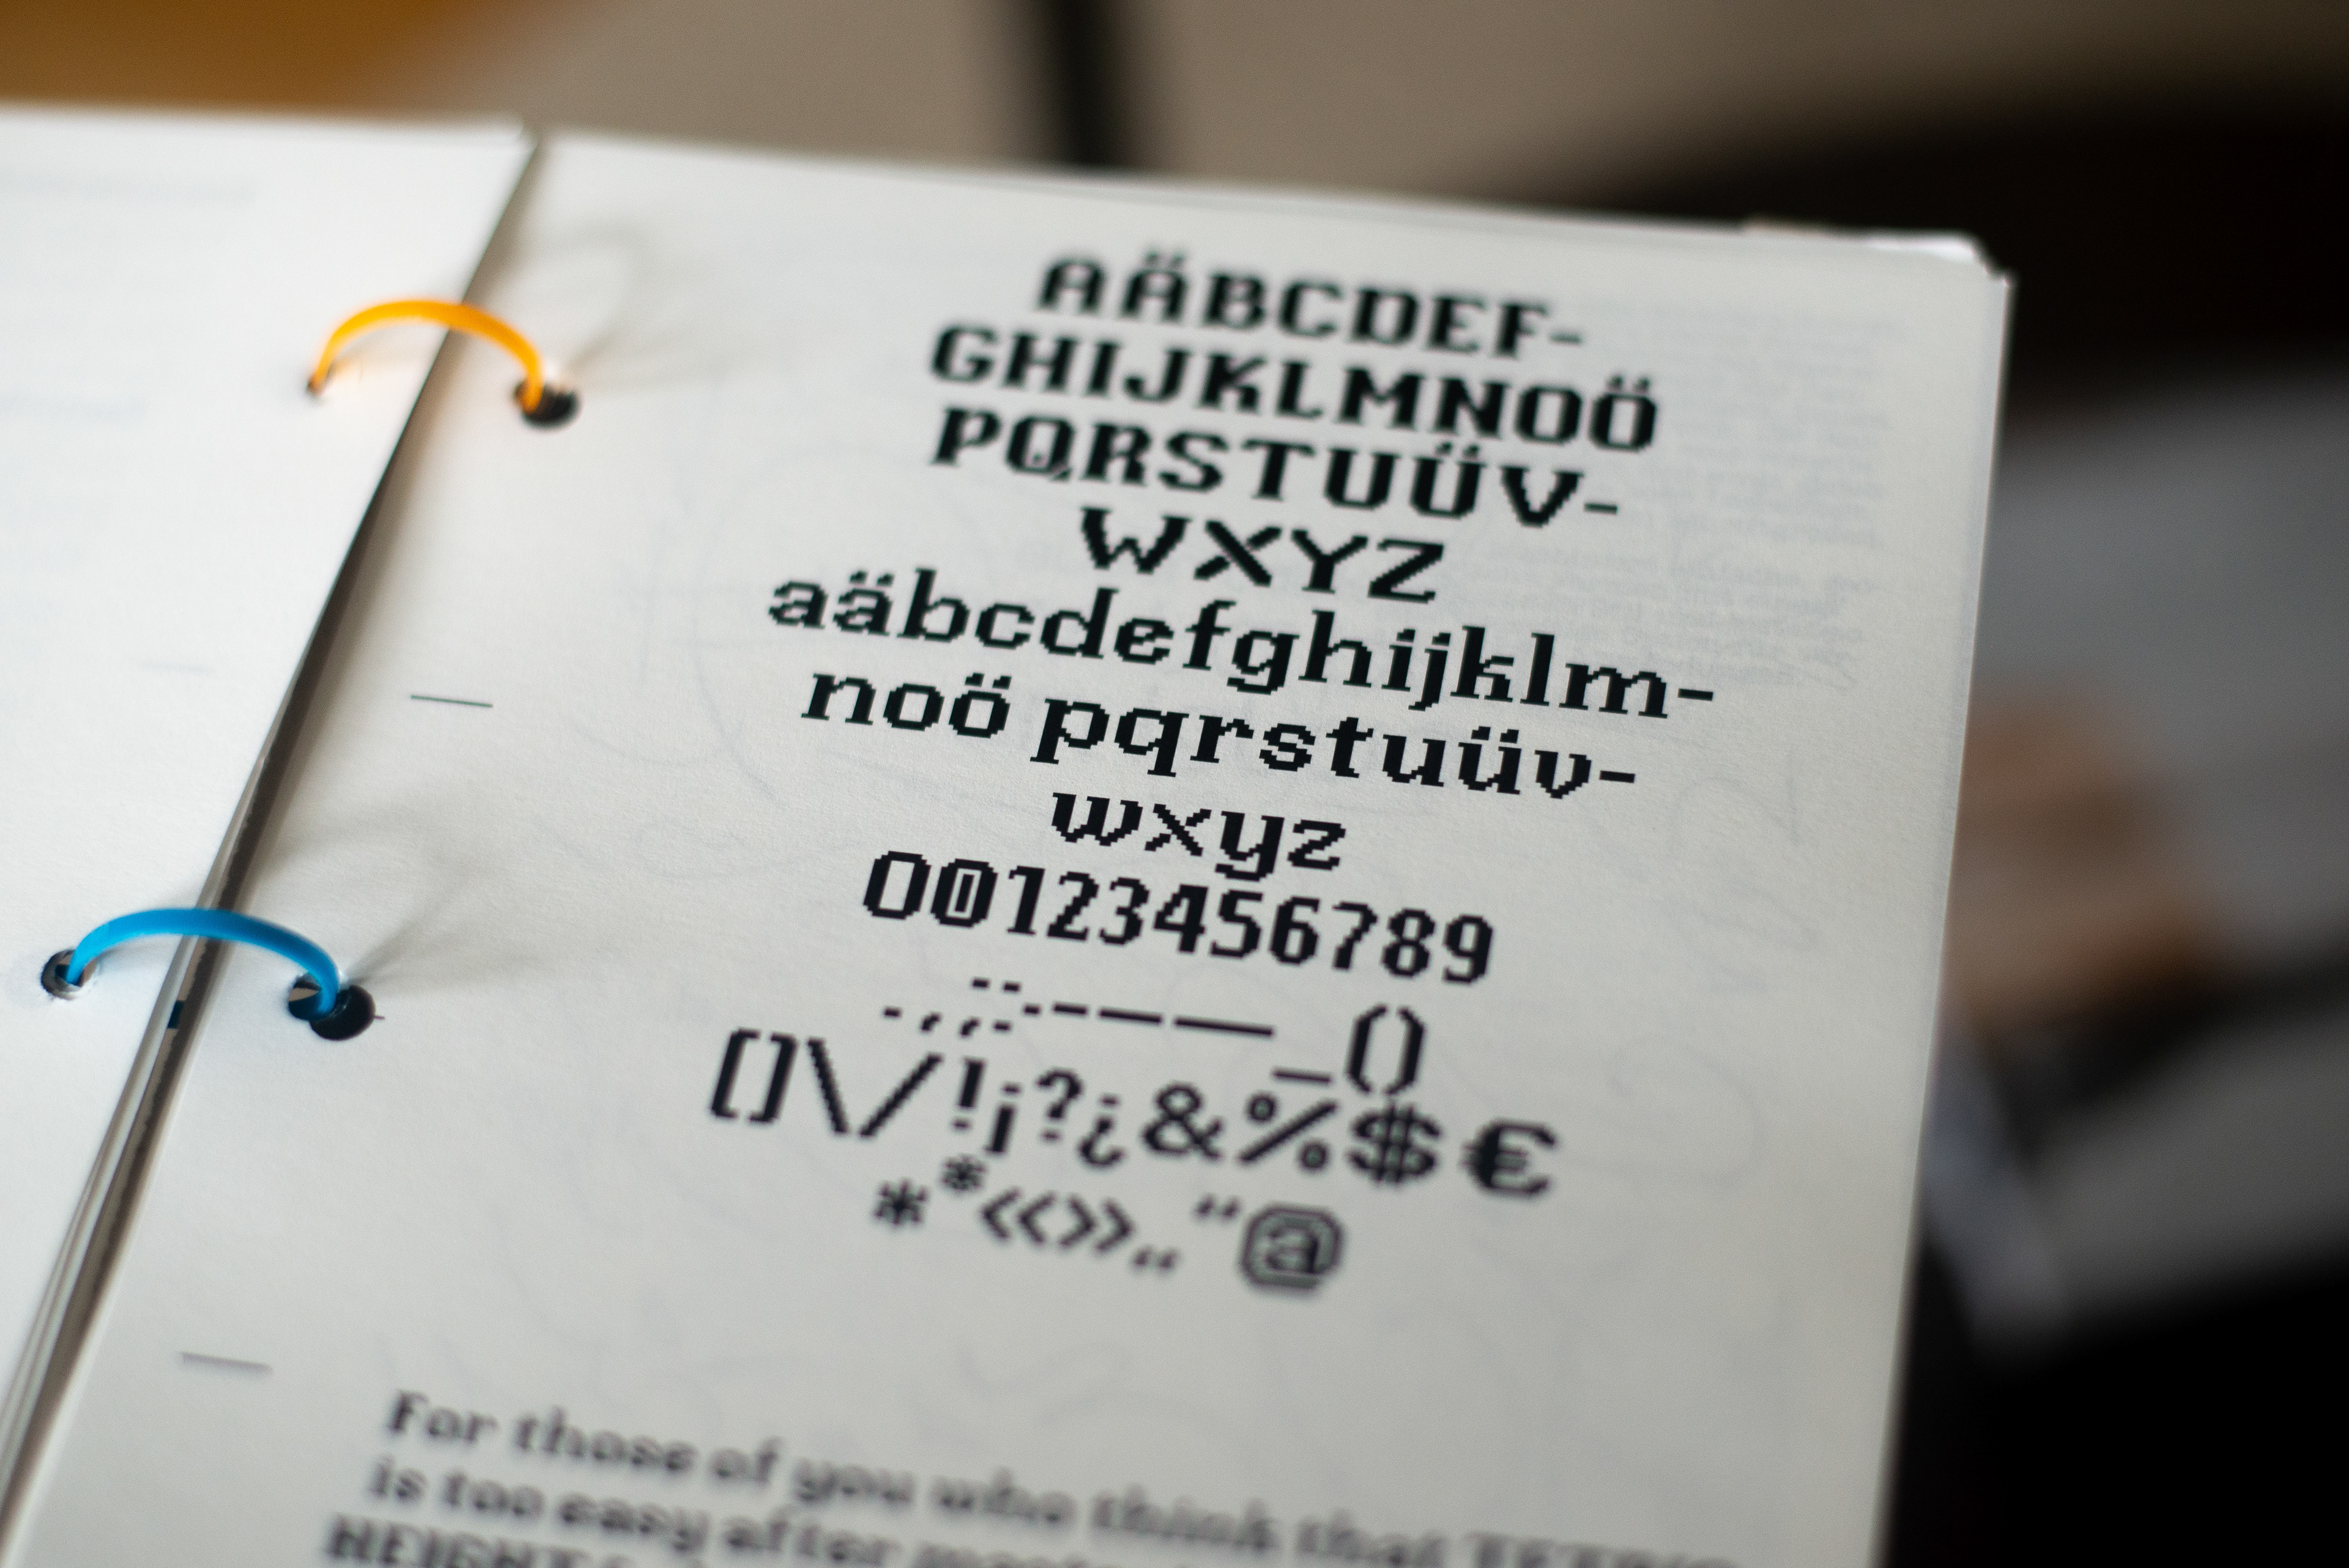 AÄBCDEF-
GHIJKLMNOÖ
PQRSTUÜV-
WXYZ
aäbcdefghijklm-
noöpqrstuüv-
wxyz
O0123456789
.,;:¨·-–—_()
[]\/!¡?¿&%$€
**«»„“@
For those of you who think that TETRIS
is too easy after
HEIGHTS